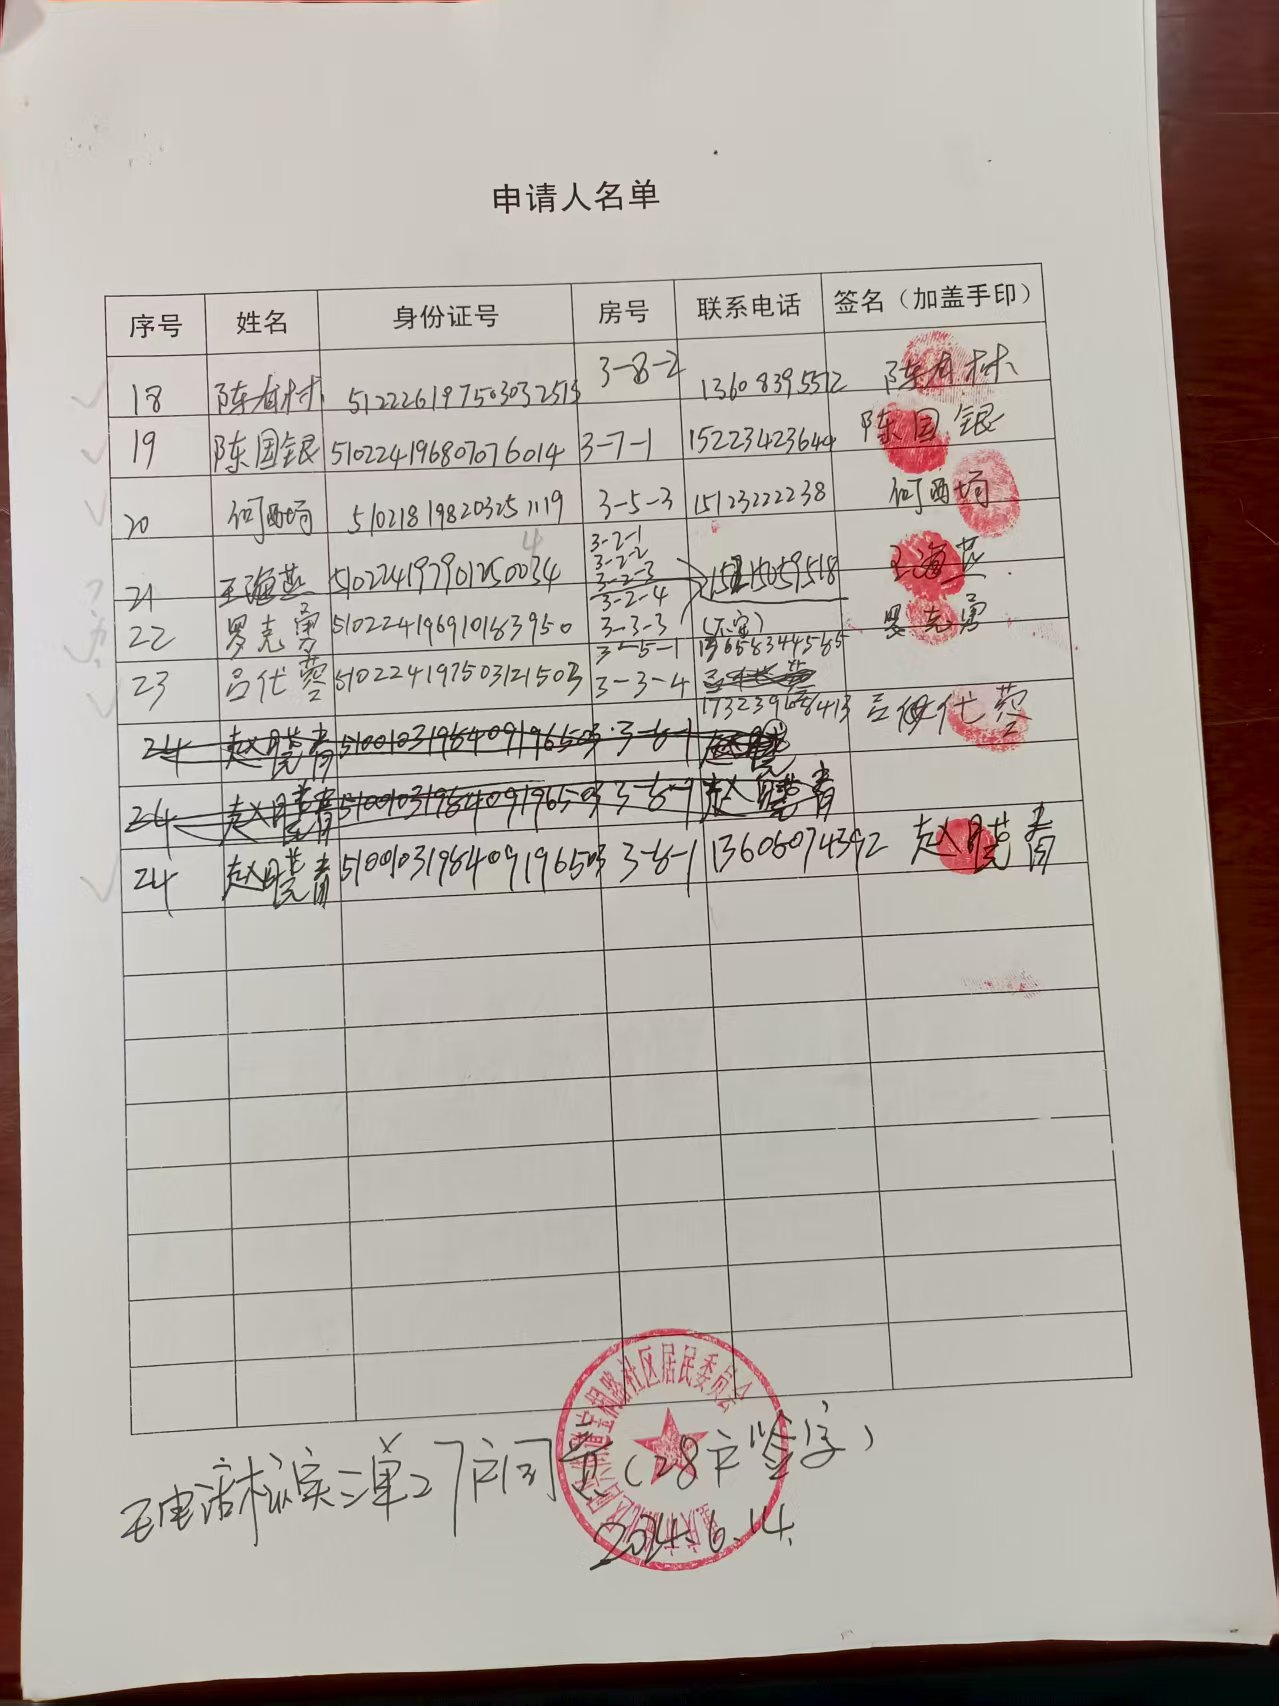 申请人名单
序号 姓名 身份证号 房号 联系电话 签名（加盖手印）
18 陈有树 512226197503032515 3-8-2 13608395512 陈有树
19 陈国银 510224196807076014 3-7-1 15223423644 陈国银
20 何西 510218198203251119 3-5-3 15123222238 何西
4
3-2-1
3-2-2
21 王海燕 510224197901250034 3-2-3 15215059518 王海燕
3-2-4
22 罗克勇 510224196910183950 3-3-3 罗克勇
3-5-1 13658344565
23 吕代蓉 51022419750312150 3-3-4 吕代蓉
24 赵晓青 510010319640919650 3-6-1
24 赵晓青 510010319640919650 3-6-1 赵晓青
24 赵晓青 510010319640919650 3-6-1 13606074392 赵晓青
社区居民委员会
电话核实三单27户同意（28户签字）
2024.6.14.